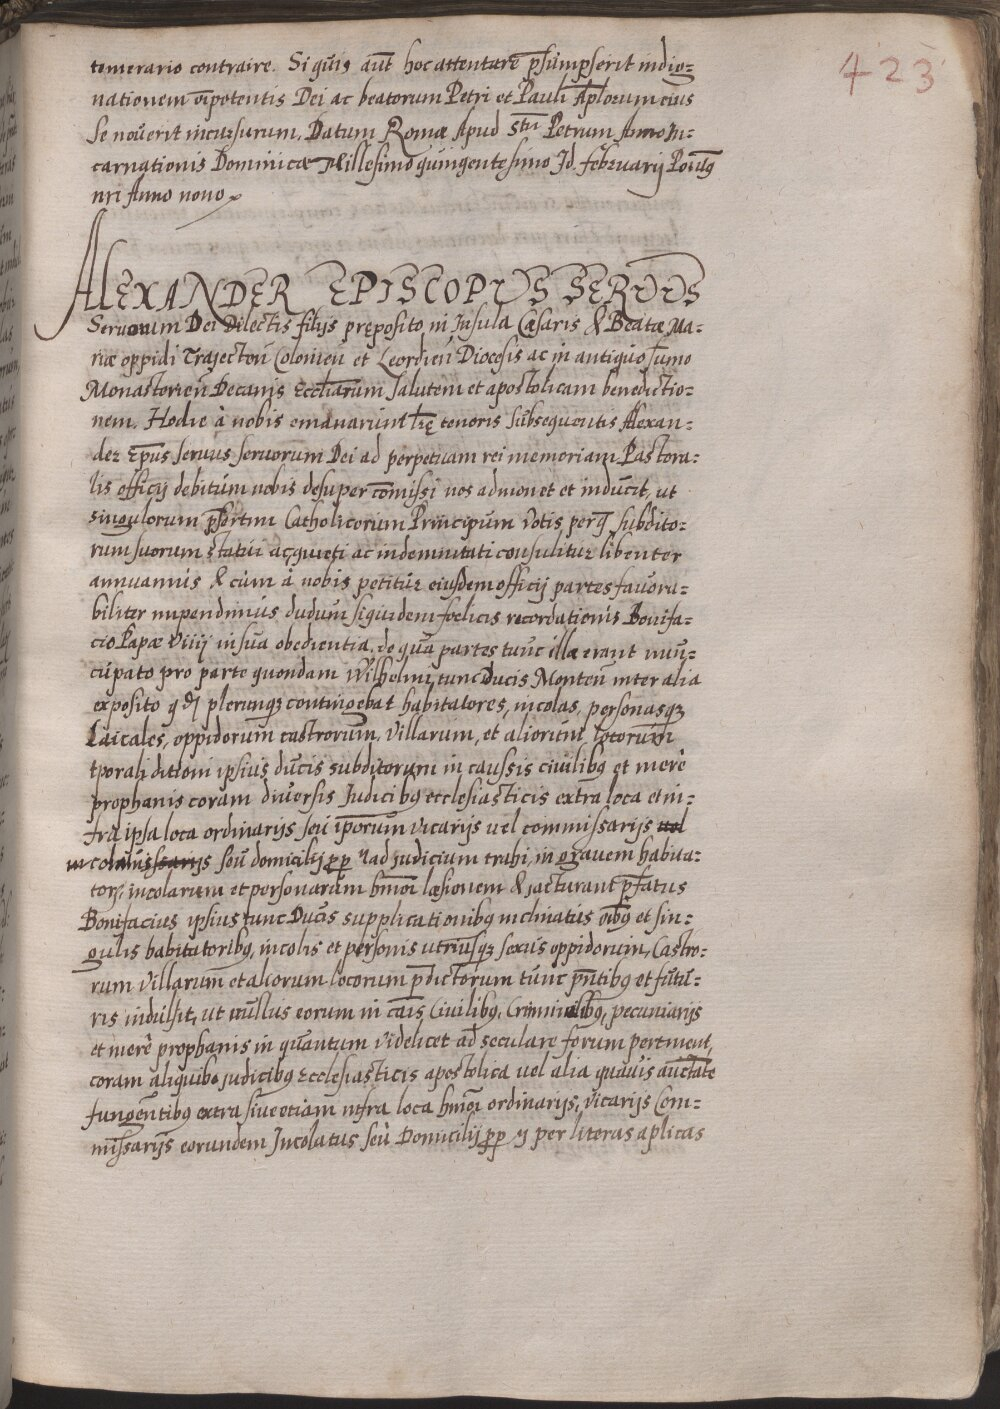 423
temerario contraire. Si quis aūt hoc attentare p̄sumpserit indig=
nationem oīpotentis Dei ac beatorum Petri et Pauli Aplorum eius
se noverit incursurum. Datum Romæ Apud Stū Petrum Anno In=
carnationis Dominicæ Millesimo quingentesimo Id. februarij
nri Anno nono
ALEXANDER EPISCOPUS SERVUS
Servorum Dei Dilectis filijs pręposito in Insula Cæsaris & Beatæ Ma=
riæ oppidi Trajecton̄ Colonien̄ et Leordien̄ Diocesis ac in antiquo sumo
Monasterien̄ Decanis Eccliarum salutem et apostolicam benedictio=
nem. Hodie à nobis emanarunt lrę tenoris subsequentis Alexan=
der Ep̄us servus servorum Dei ad perpetuam rei memoriam Pastora=
lis officij debitum nobis desuper com̄issi nos admonet et inducit, ut
singulorum p̄sertim Catholicorum Principum votis per q̄ subdito=
rum suorum statui ac quieti ac indemnitati consulitur libenter
annuamus & cùm à nobis petitur eiusdem officij partes favora=
biliter impendimus dudum siquidem fœlicis recordationis Bonifa=
cio Papæ Viiij in sua obedientia de qua partes tunc illæ erant nun=
cupato pro parte quondam Wilhelmi tunc Ducis Monten̄ inter alia
exposito q d plerunq; contingebat habitatores, incolas, personasq;
Laicales, oppidorum castrorum, villarum, et aliorum locorum
tporali ditioni ipsius ducis subditorum in caussis civilibq et merè
prophanis coram diversis Judicibq ecclesiasticis extra loca et in=
fra ipsa loca ordinarijs seu ip̄orum vicarijs vel commissarijs vel
seu domicilij ad judicium trahi, in gravem habita=
tor, incolarum et personarum hmoi læsionem & jacturam p̄fatus
Bonifacius ipsius tunc Ducis supplicationibq inclinatus oībq et sin=
gulis habitatoribq, incolis et personis utriusq; sexus oppidorum, Castro=
rum villarum et aliorum locorum p̄dictorum tunc p̄ntibq et futu=
ris indulsit, ut nullus eorum in cāis Civilibq, Criminalibq, pecuniarijs
et merè prophanis in quantum videlicet ad seculare forum pertinent,
coram aliquibq judicibq Ecclesiasticis apostolica vel alia quavis auctate
fungentibq extra sive etiam infra loca hmoi ordinarijs, vicarijs Com=
missarijs eorundem Incolatus seu Domicilij per literas aplicas